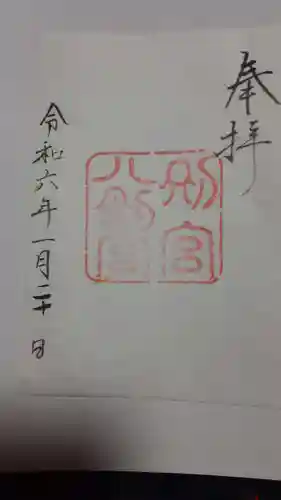 奉拝
別宮
八剣宮
令和六年一月二十日